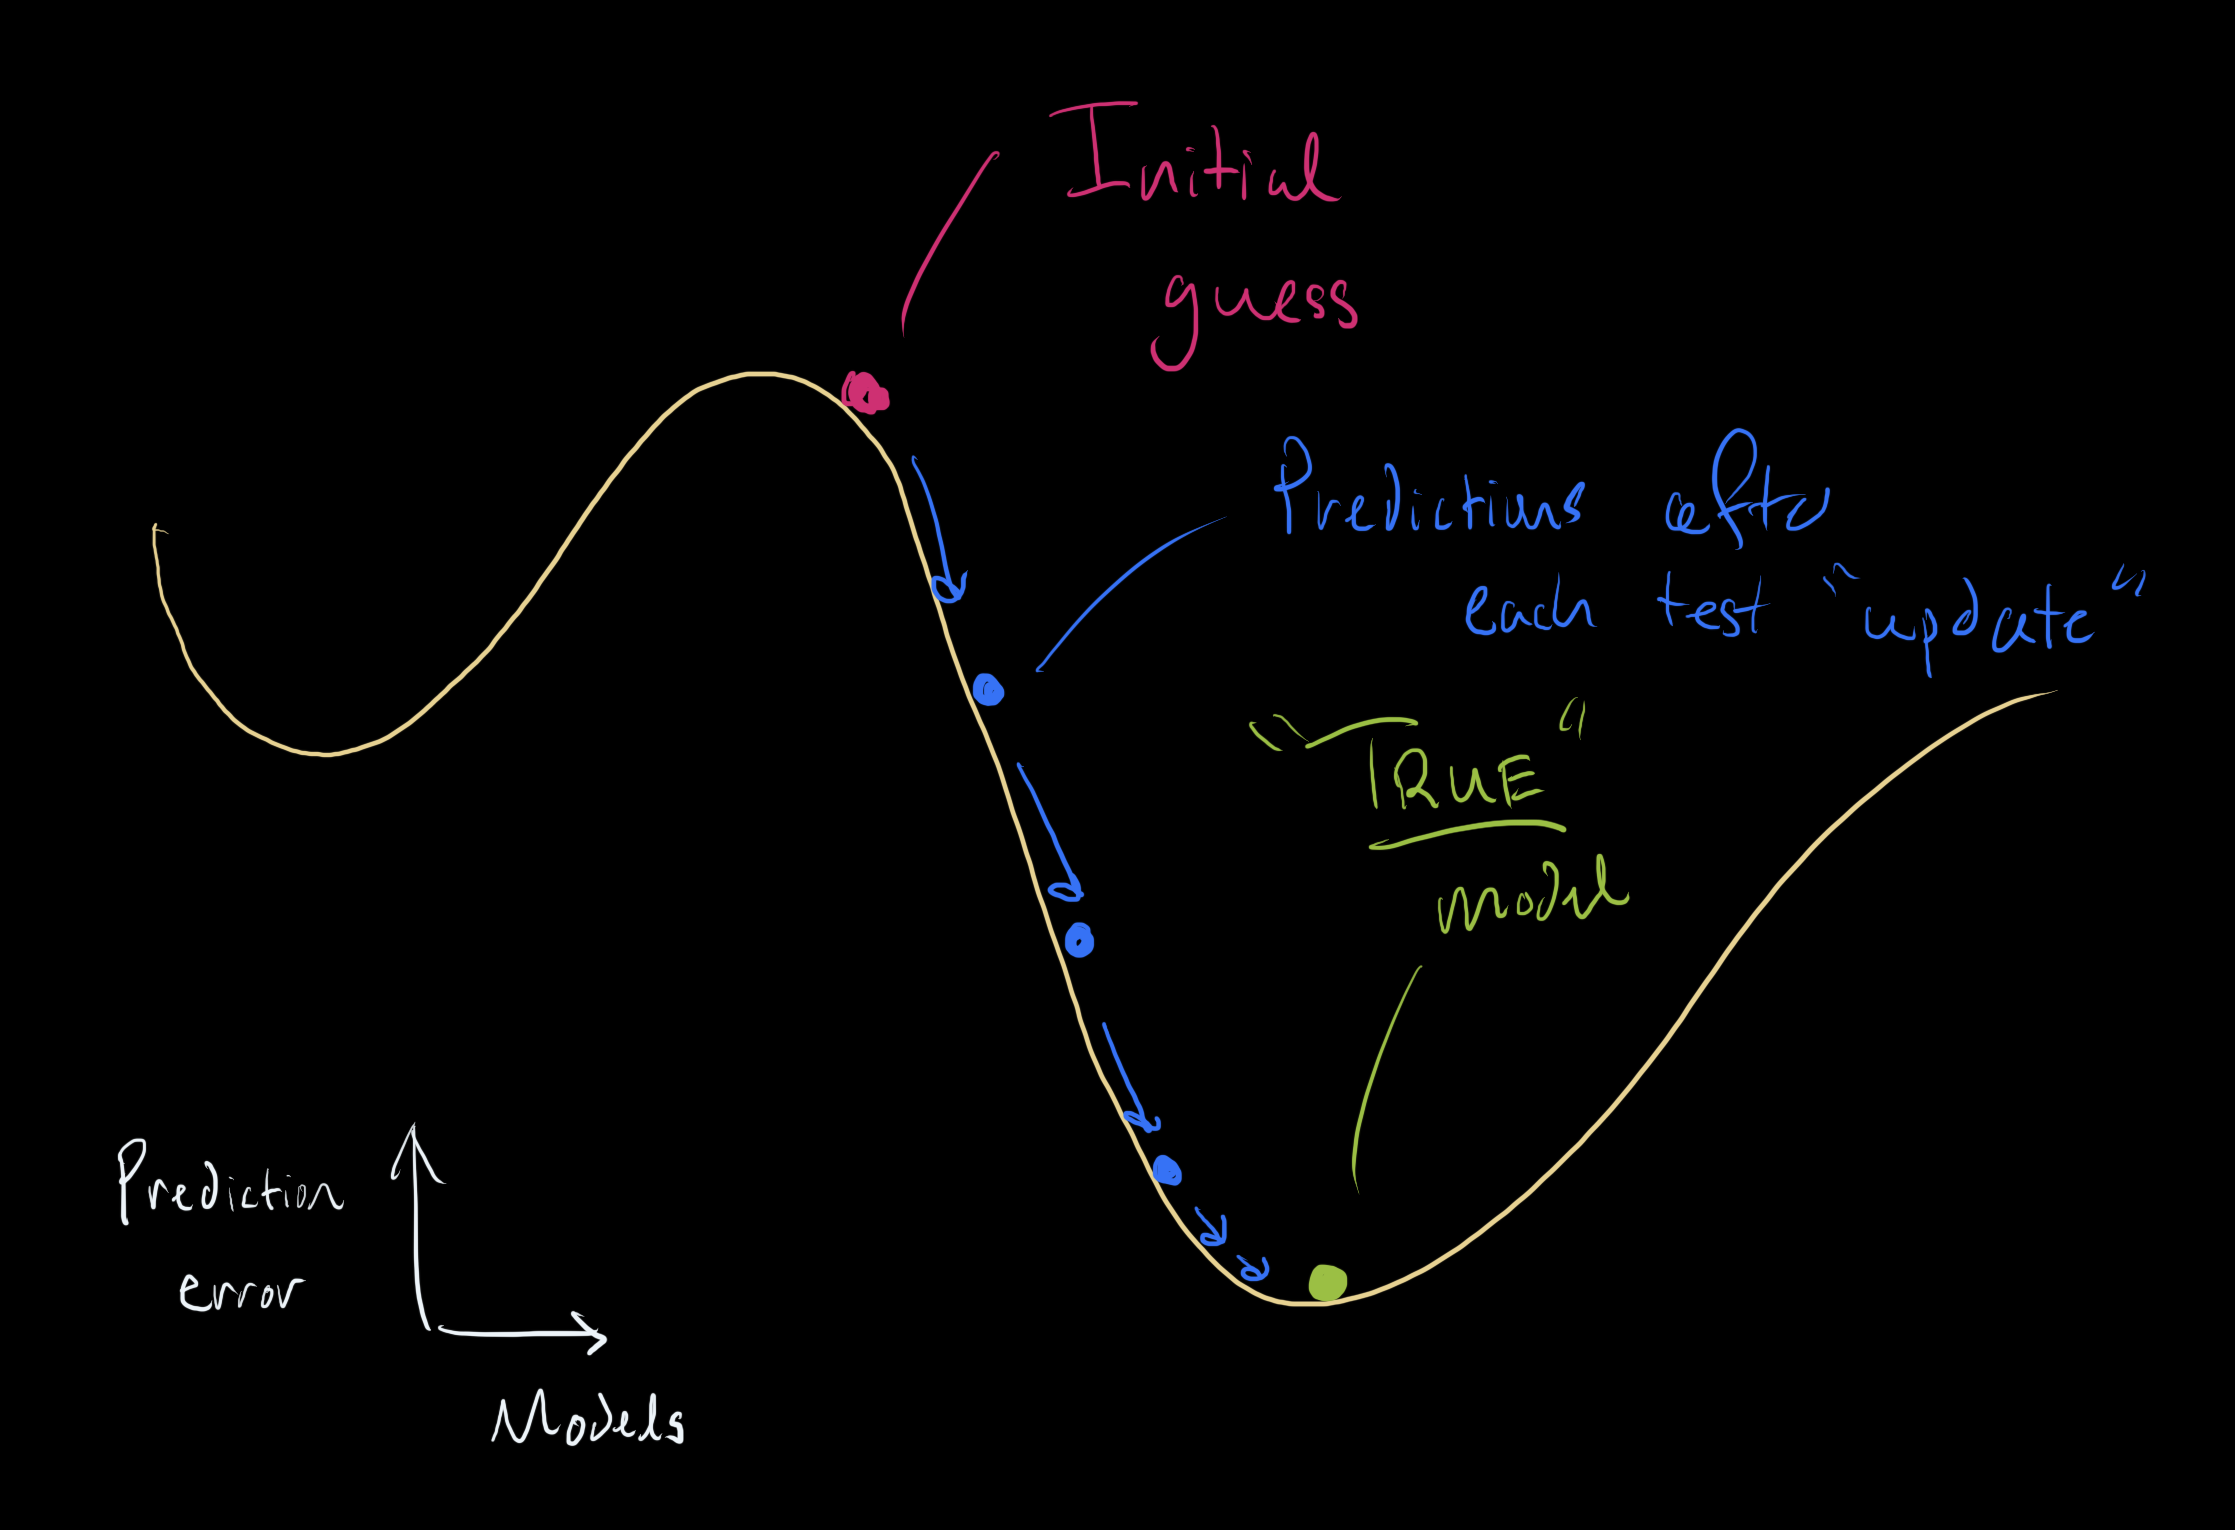 Initial
guess
Predictions after
each test "update"
"TRUE"
model
Prediction
error
Models